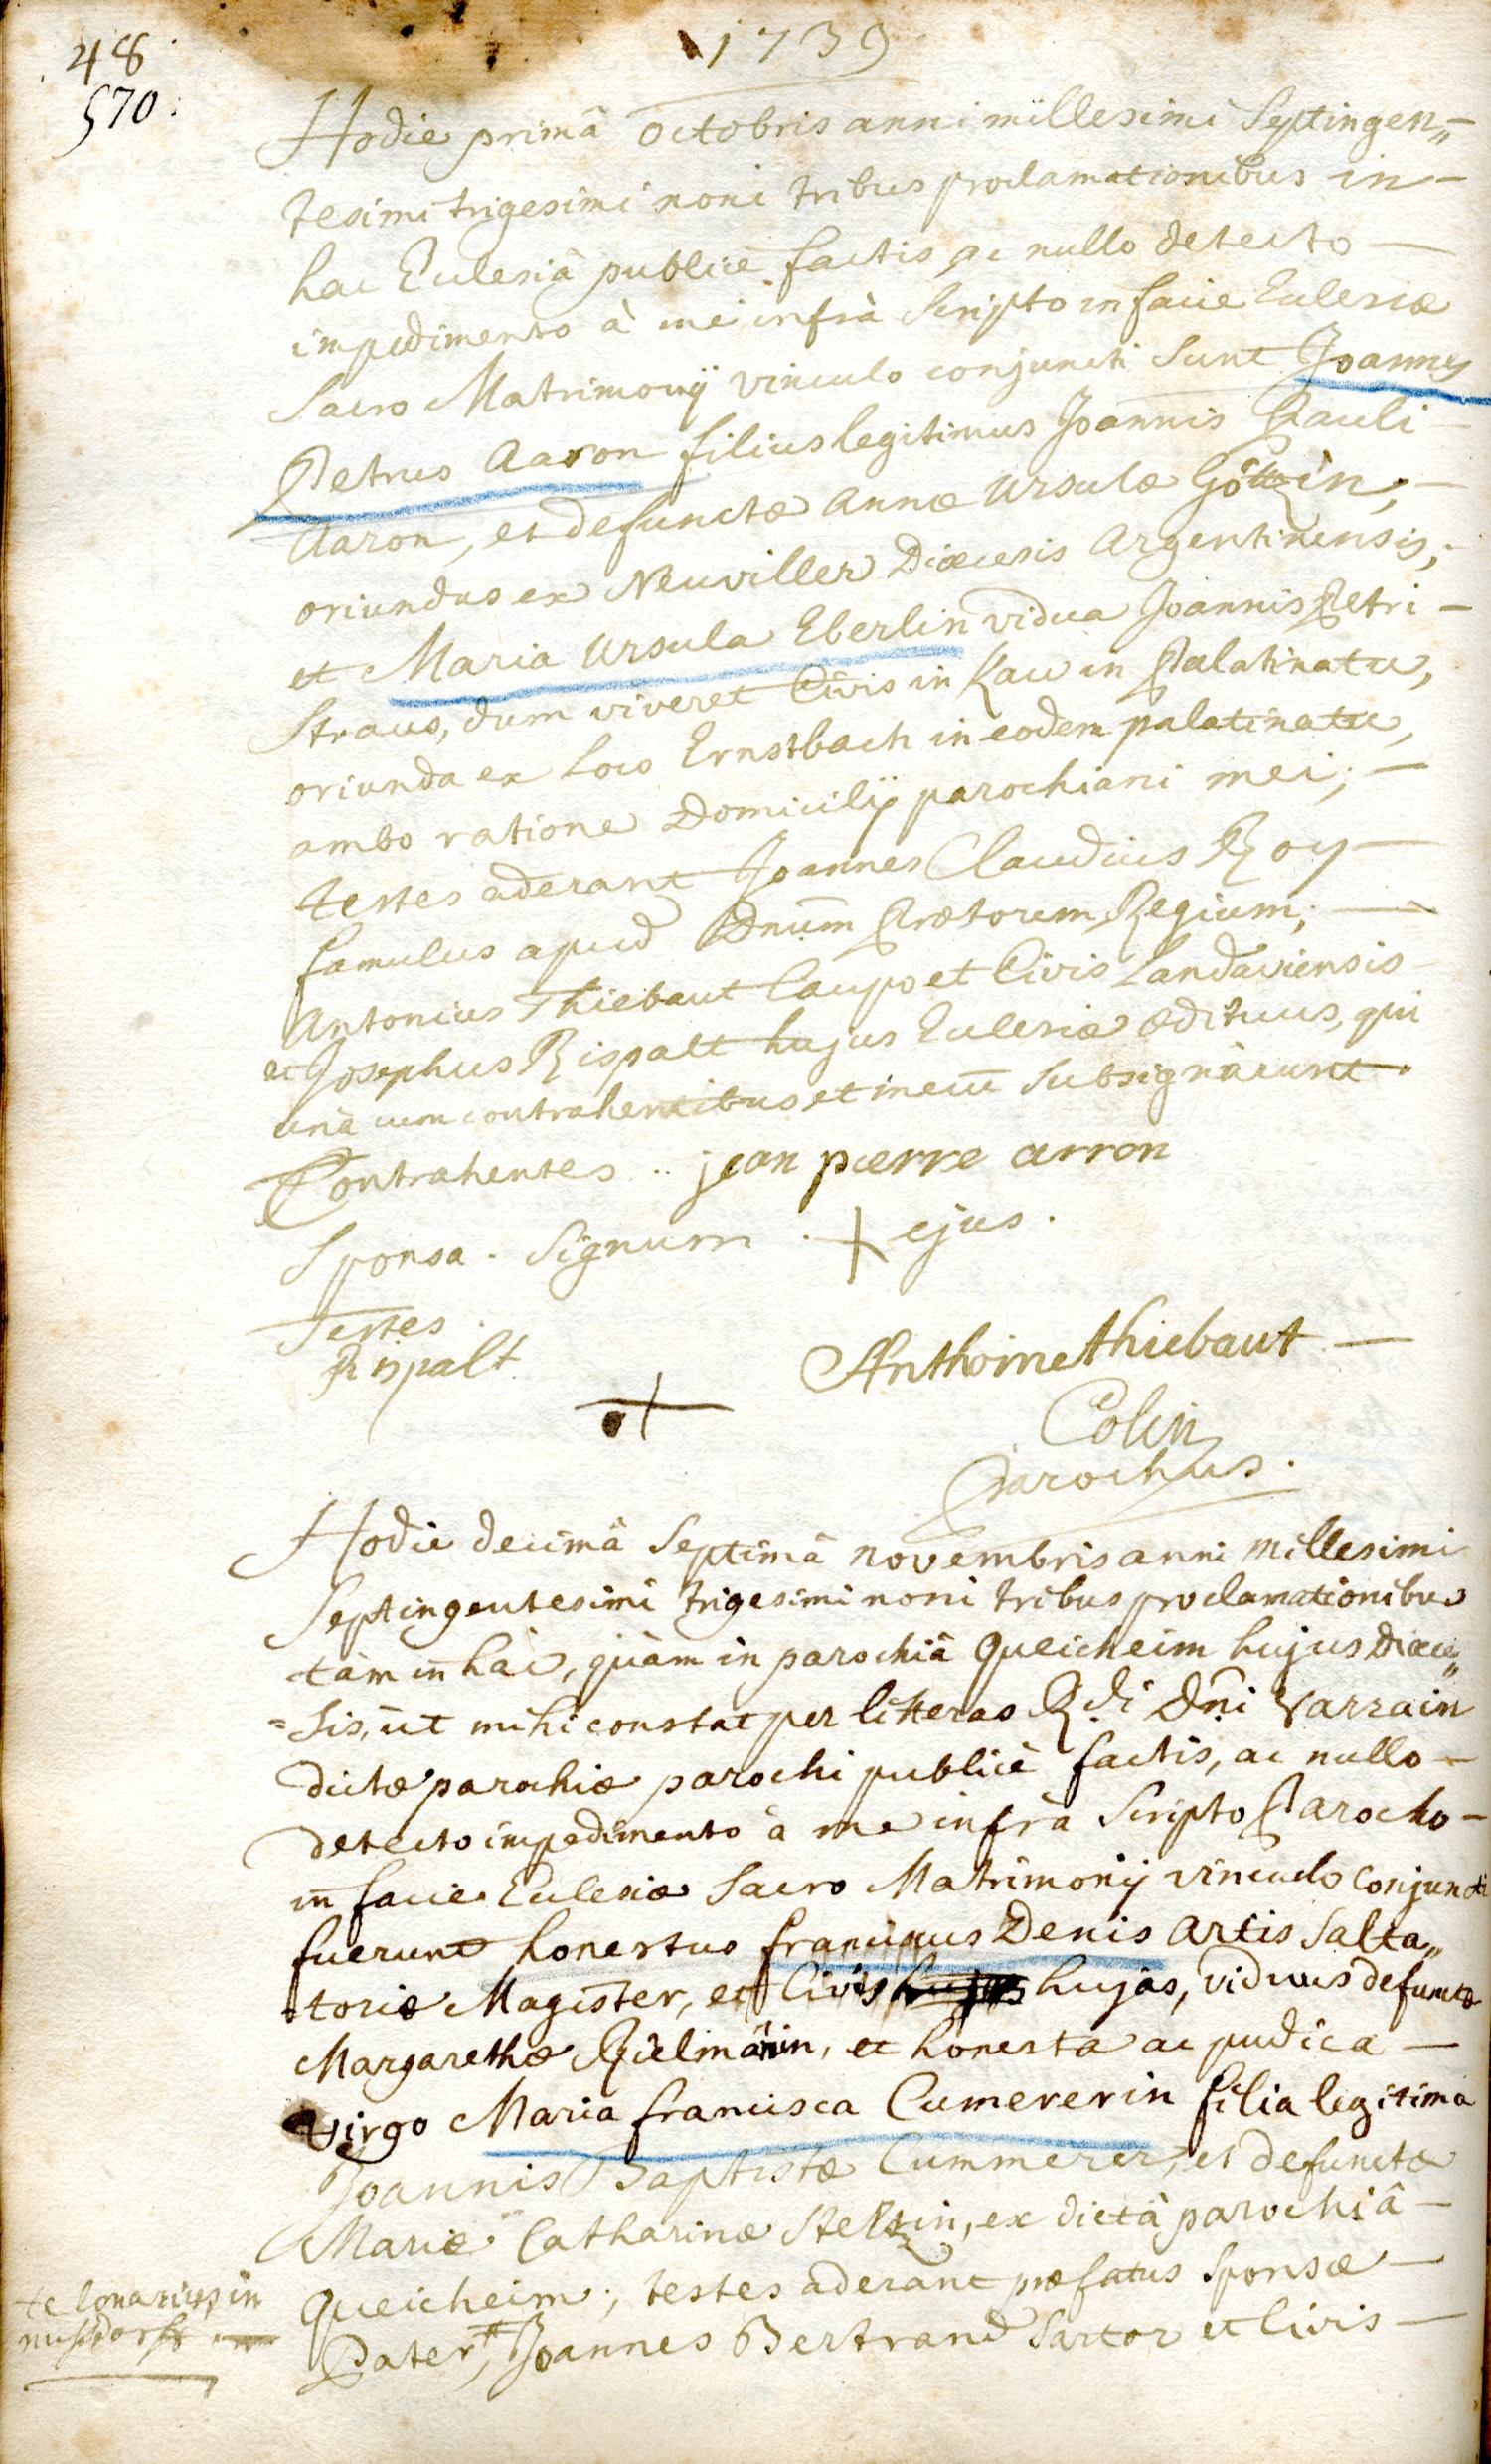 48
570.
1739
Hodie primâ octobris anni millesimi Septingen„
tesimi trigesimi noni tribus proclamationibus in -
hac Ecclesiâ publicè factis, ac nullo detecto -
impedimento à me infrà Scripto in facie Ecclesiæ
Sacro Matrimonij vinculo conjuncti Sunt Joannes
Petrus Aaron filius legitimus Joannis Pauli
Aaron, et defunctæ Annæ Ursulæ
oriundus ex Neuviller Diœcesis Argentinensis,
et Maria Ursula Eberlin vidua Joannis Petri -
Straus, dum viveret Civis in Kaw in Palatinatu,
oriunda ex Loco Ernstbach in eodem palatinatu,
ambo ratione Domicilij parochiani mei; -
testes aderant Joannes Claudius Roy -
famulus apud Dnum Prætorem Regium; -
Antonius Thiebaut Caupo et Civis Landaviensis
ac Josephus Rispalt hujus Ecclesiæ Ædituus, qui
unà cum contrahentibus et mecū Subsignârunt.
Contrahentes .. jean pierre arron
Sponsa. Signum . + ejus.
Testes.
Rispalt. Anthoine thiebaut -
+
Colin
Parochus.
Hodie decimâ Septimâ novembris anni millesimi
Septingentesimi trigesimi noni tribus proclamationibus
tàm in hâc, quàm in parochiâ Queicheim hujus Diœce„
=sis, ut mihi constat per litteras R.di Dñi Varrain
dictæ parochiæ parochi publicè factis, ac nullo -
detecto impedimento à me infrà Scripto Parocho -
in facie Ecclesiæ Sacro Matrimonij vinculo conjuncti
fuerunt honestus franciscus Denis Artis Salta„
toriæ Magister, et Civis hujas, viduus defunctæ
Margarethæ, et honesta ac pudica -
virgo Maria francisca Cumererin filia legitima
Joannis Baptistæ Cummerer, et defunctæ
Mariæ Catharinæ Steltzin, ex dictâ parochiâ -
Queicheim; testes aderant præfatus Sponsæ -
Pater #, Joannes Bertrand Sartor et Civis -
telonarius in
nussdorff